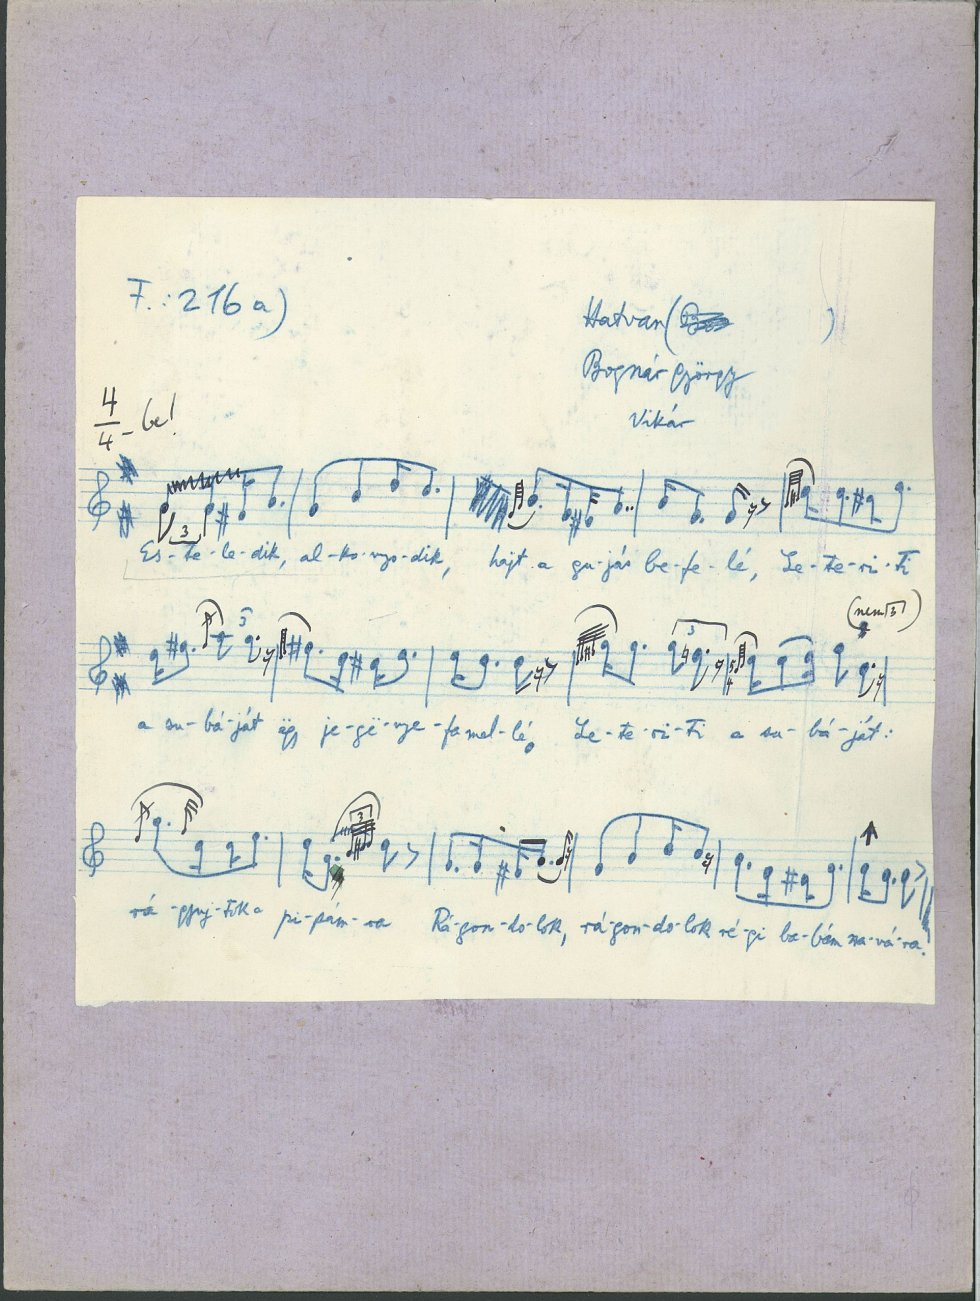 F.: 216 a)
Hatvan (
)
Bognár György
Vikár
4/4 - be!
3
Es-te-le-dik, al-ko-nyo-dik, hajt a gu-jás be-fe-lé, Le-te-rí-ti
3
(nem 3)
3
5/4
a su-bá-ját ëgy je-gë-nye-fa mel-lé, Le-te-rí-ti a su-bá-ját:
3
rá-gyuj-tik a pi-pám-ra Rá-gon-do-lok, rá-gon-do-lok ré-gi ba-bám sza-vá-ra.